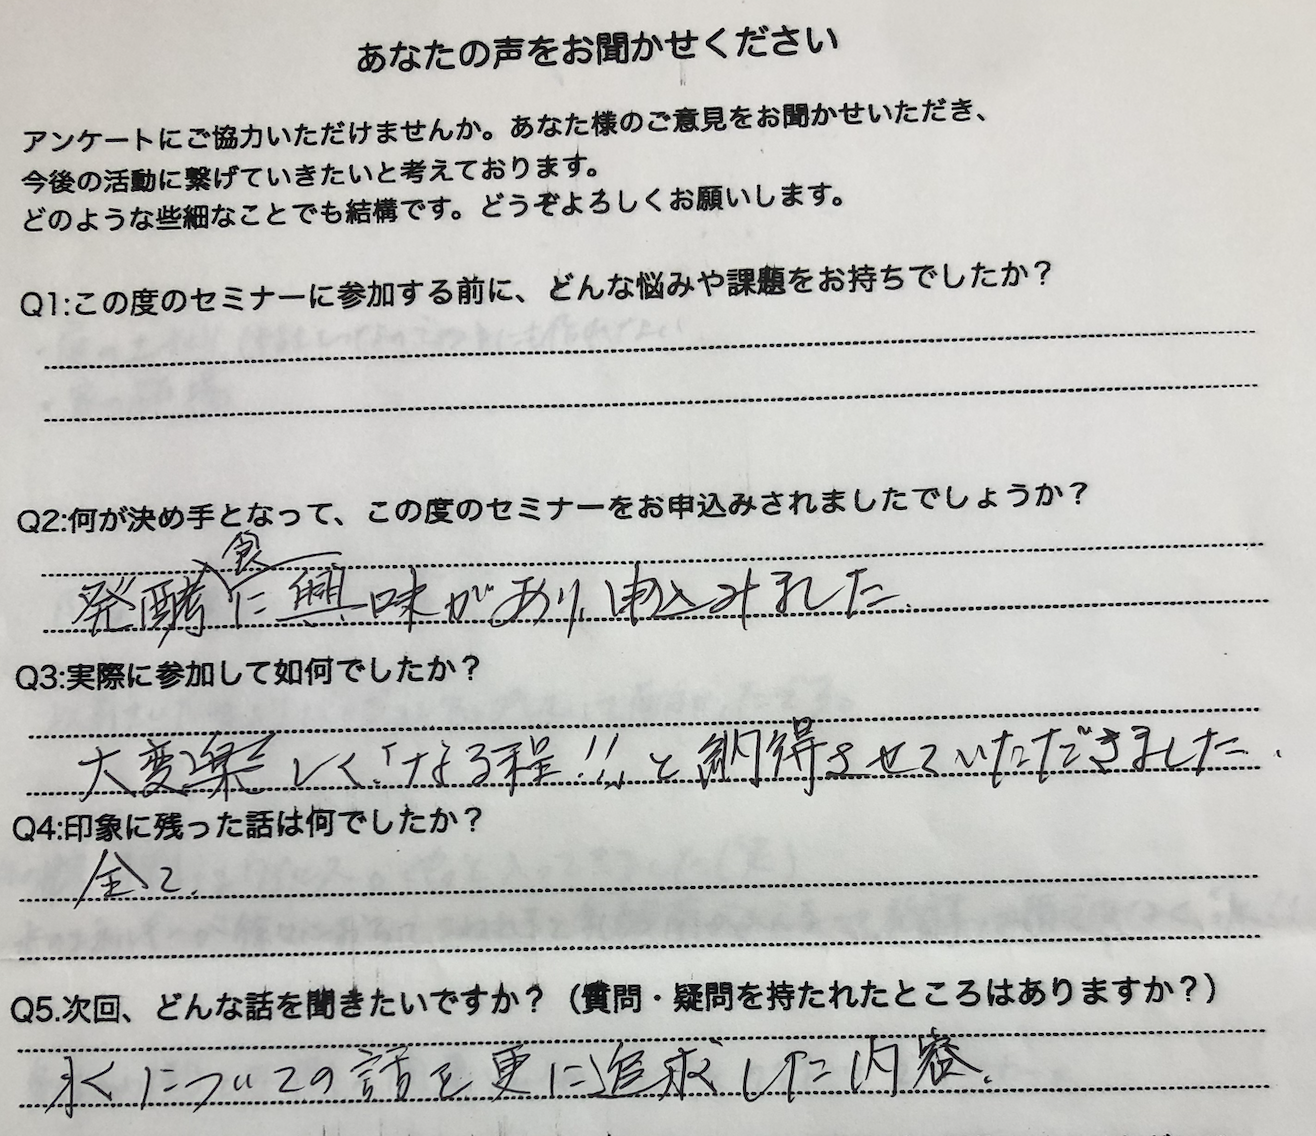 あなたの声をお聞かせください
アンケートにご協力いただけませんか。あなた様のご意見をお聞かせいただき、
今後の活動に繋げていきたいと考えております。
どのような些細なことでも結構です。どうぞよろしくお願いします。
Q1:この度のセミナーに参加する前に、どんな悩みや課題をお持ちでしたか？
Q2:何が決め手となって、この度のセミナーをお申込みされましたでしょうか？
発酵食に興味があり、申込みました.
Q3:実際に参加して如何でしたか？
大変楽しく、「なる程!!」と納得させていただきました.
Q4:印象に残った話は何でしたか？
全て.
Q5.次回、どんな話を聞きたいですか？（質問・疑問を持たれたところはありますか？）
水についての話を更に追求した内容.